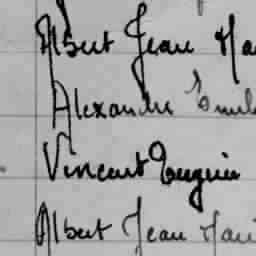 Albert Jean Ma
Alexandre Emil
Vincent Eugène
Albert Jean Mari